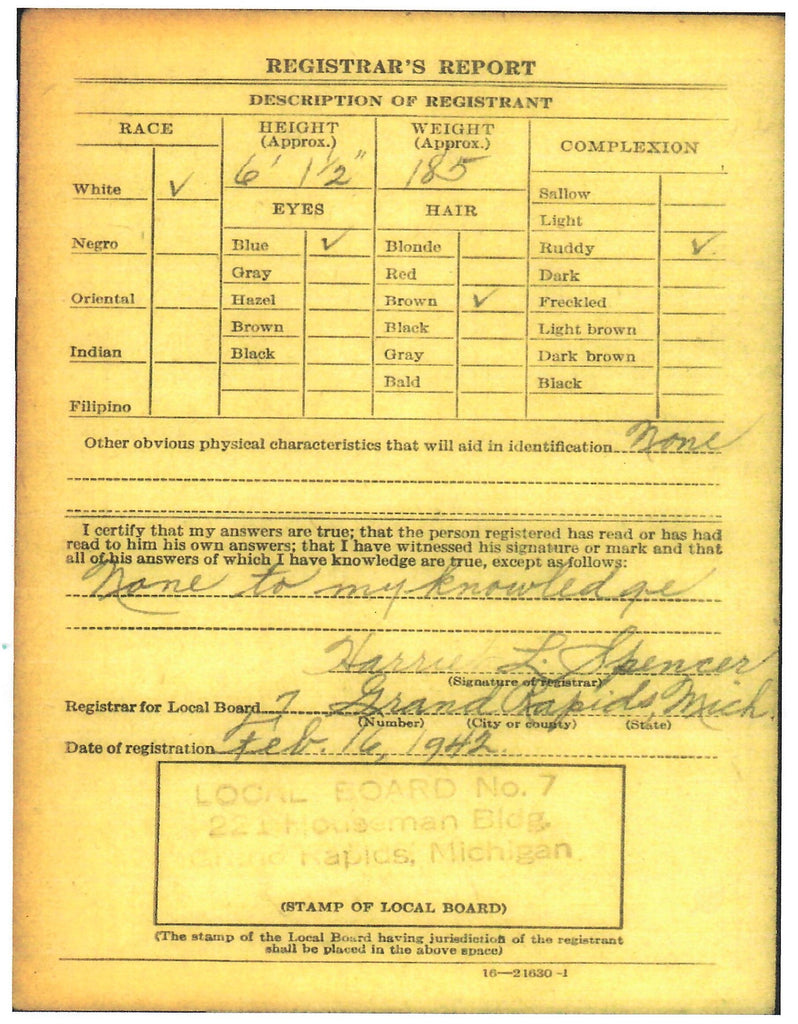 REGISTRAR'S REPORT
DESCRIPTION OF REGISTRANT
RACE
HEIGHT
(Approx.)
WEIGHT
(Approx.)
COMPLEXION
6' 1½"
185
White ✓
Negro
Oriental
Indian
Filipino
EYES
Blue ✓
Gray
Hazel
Brown
Black
HAIR
Blonde
Red
Brown ✓
Black
Gray
Bald
Sallow
Light
Ruddy ✓
Dark
Freckled
Light brown
Dark brown
Black
Other obvious physical characteristics that will aid in identification None
I certify that my answers are true; that the person registered has read or has had
read to him his own answers; that I have witnessed his signature or mark and that
all of his answers of which I have knowledge are true, except as follows:
None to my knowledge
Harriet L. Spencer
(Signature of registrar)
Registrar for Local Board 7 Grand Rapids, Mich.
(Number) (City or county) (State)
Date of registration Feb. 16, 1942.
LOCAL BOARD No. 7
221 Houseman Bldg.
Grand Rapids, Michigan
(STAMP OF LOCAL BOARD)
(The stamp of the Local Board having jurisdiction of the registrant
shall be placed in the above space)
16—21630-1